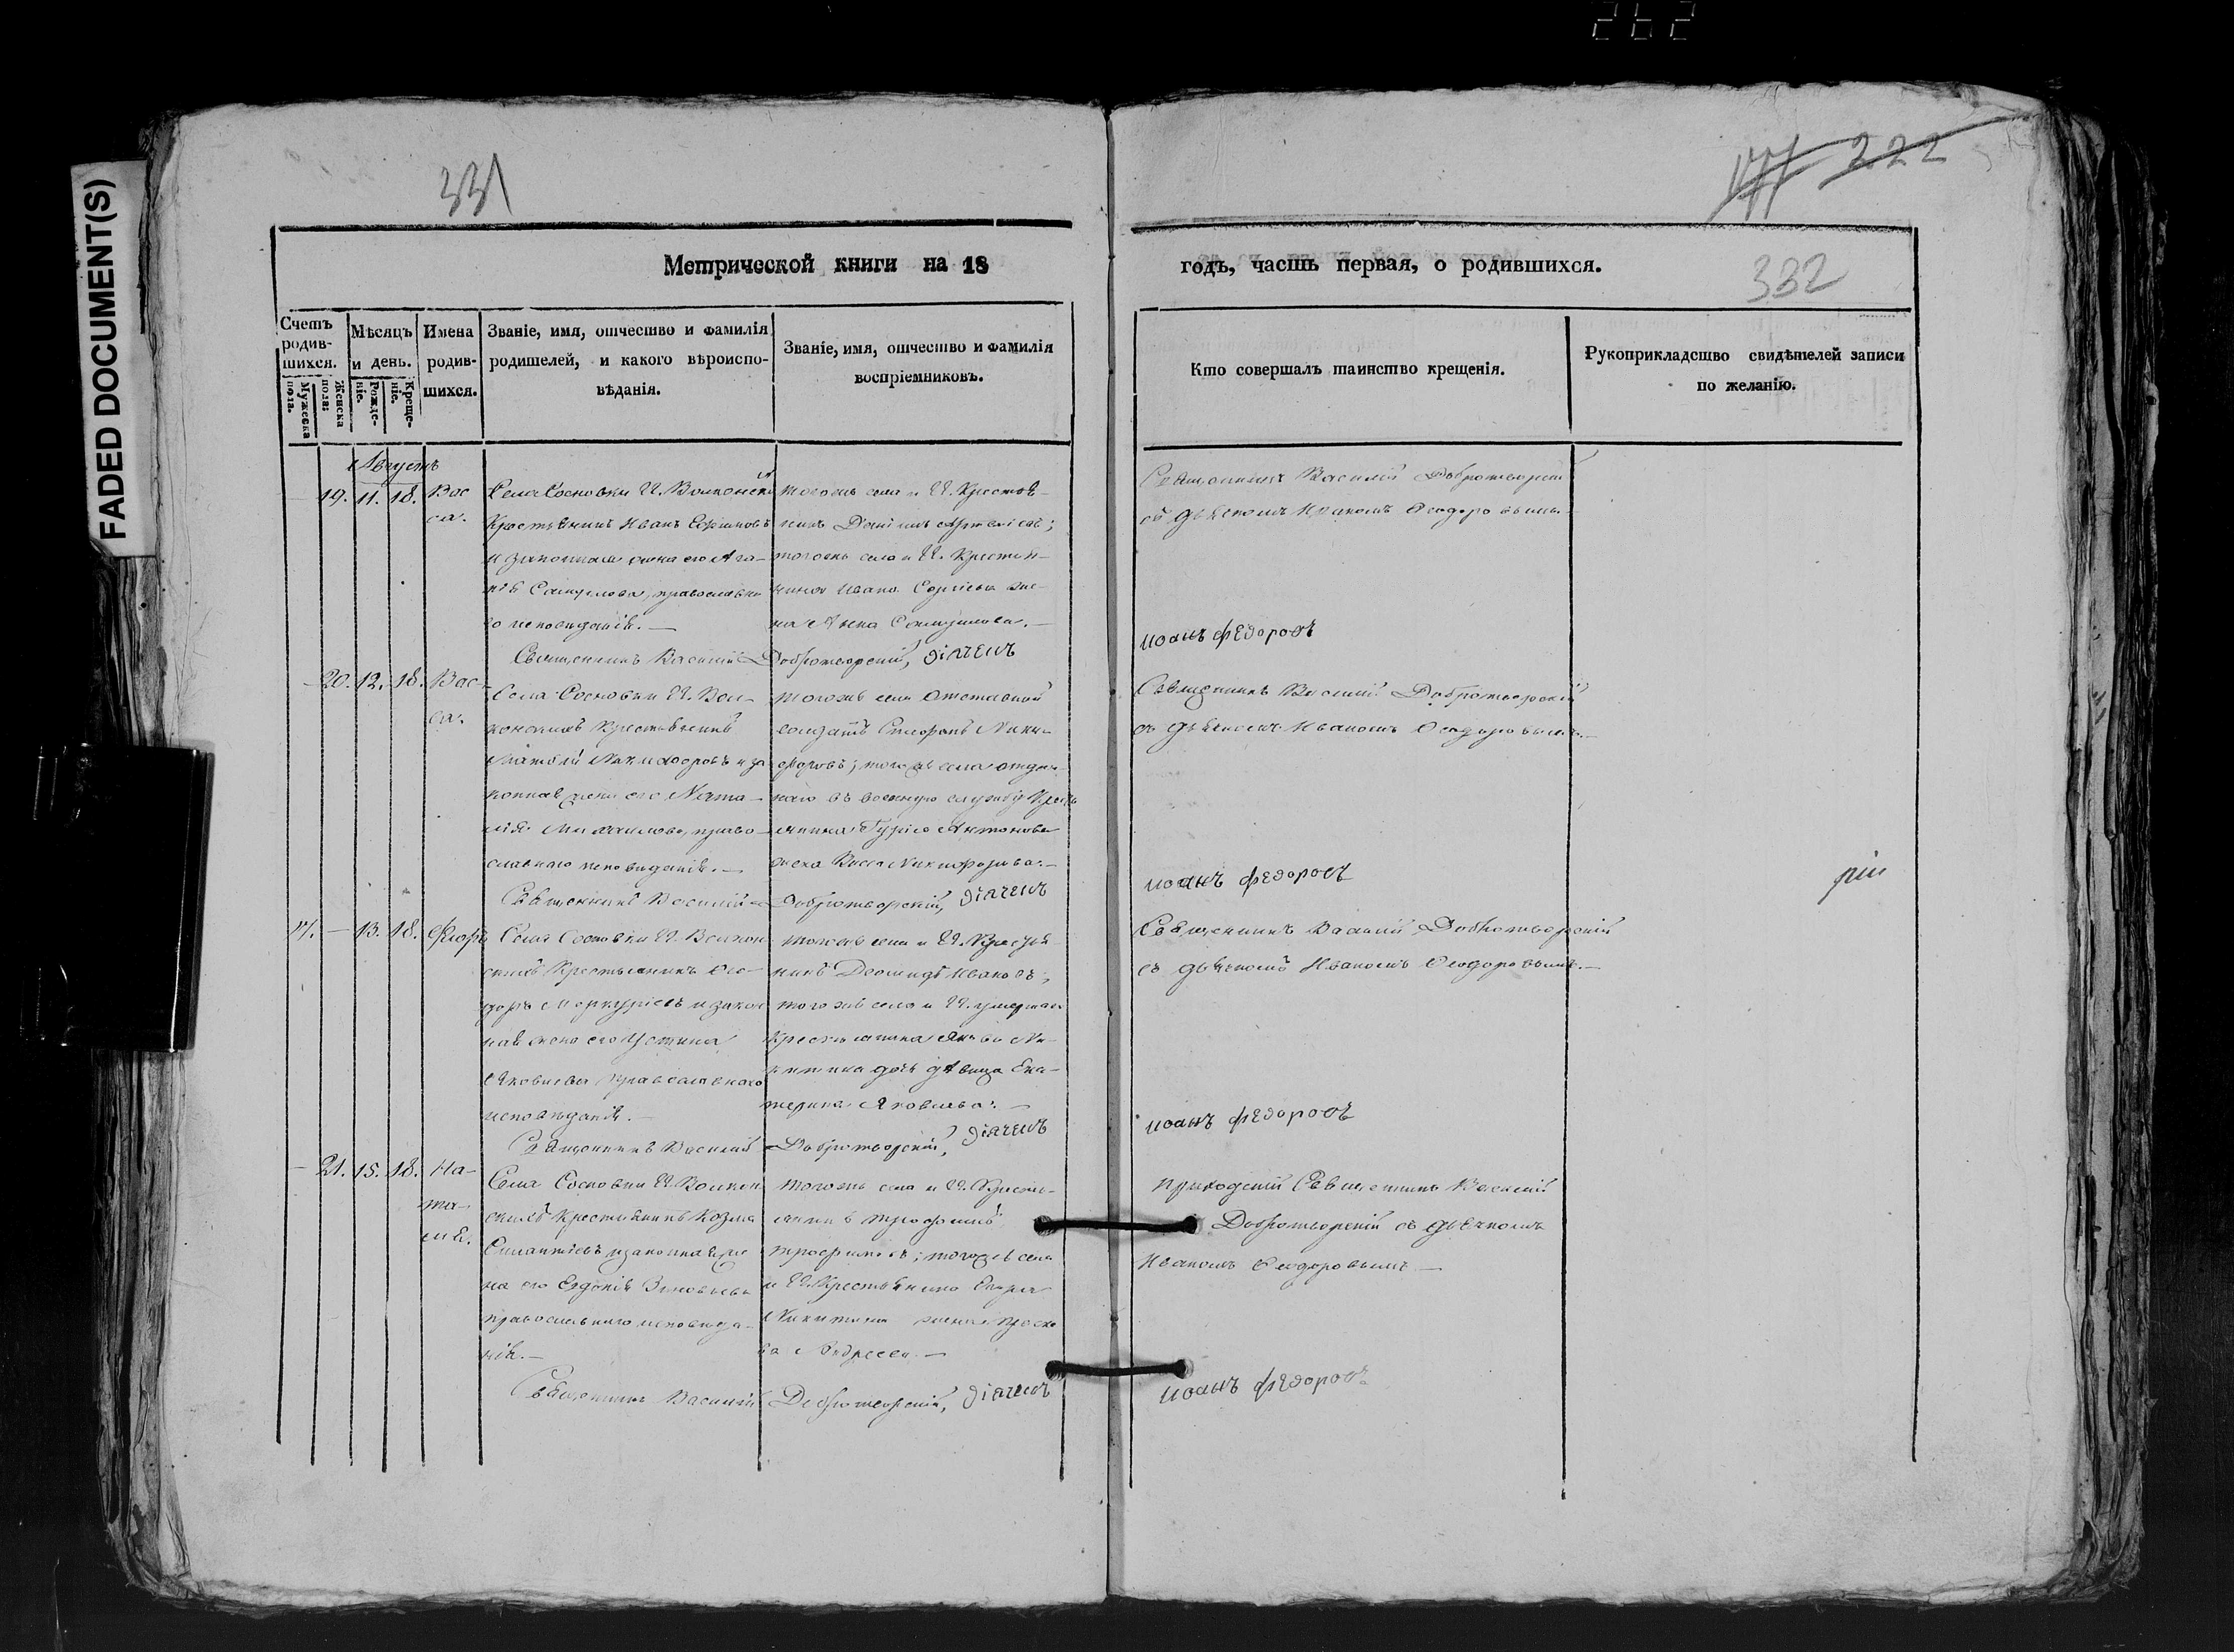 262
FADED DOCUMENT(S)
331
222
332
Метрической книги на 18
годъ, часть первая, о родившихся.
Счетъ родив-шихся.
Мужеска пола.
Женска пола:
Мѣсяцъ и день.
Рожде-ніе.
Креще-ніе.
Имена родив-шихся.
Званіе, имя, отчество и фамилія
родителей, и какого вѣроиспо-
вѣданія.
Званіе, имя, отчество и фамилія
воспріемниковъ.
Кто совершалъ таинство крещенія.
Рукоприкладство свидѣтелей записи
по желанію.
Августъ
— 19. 11. 18. Вас
са.
Села Сосновки
Крестьянинъ Иванъ
и законная жена его Ага-
пія Самуилова, православна
го исповѣданія. —
тогожъ села и Крестья-
нинъ Даніилъ
тогожъ села и Крестья-
нина Ивана Сергіева же-
на Анна Самуилова. —
Священникъ Василій Добротворскій
съ дьячкомъ Иваномъ Ѳеодоровымъ
Священникъ Василій Добротворскій, діячекъ
иоанъ федоровъ
— 20. 12. 18. Вас-
са.
Села Сосновки
Крестьянинъ
Никифоровъ и за
конная жена его Ната-
лія Михаилова, право-
славнаго исповѣданія. —
тогожъ села Отставной
солдатъ Стефанъ Ники-
форовъ; тогожъ села отдан-
наго въ военную службу Кресть
янина Гурія Антонова
жена Васса Никифорова. —
Священникъ Василій Добротворскій
съ дьячкомъ Иваномъ Ѳеодоровымъ. —
Священникъ Василій Добротворскій, діячекъ
иоанъ федоровъ
17. — 13. 18. Флоръ
Села Сосновки
Крестьянинъ Ѳео-
доръ Меркуріевъ и закон
ная жена его Устина
Яковлева православнаго
исповѣданія. —
тогожъ села и Крестья-
нинъ Діомидъ Ивановъ;
тогожъ села и умершаго
Крестьянина Якова Ни-
китина дочь дѣвица Ека-
терина Яковлева. —
Священникъ Василій Добротворскій
съ дьячкомъ Иваномъ Ѳеодоровымъ. —
Священникъ Василій Добротворскій, діячекъ
иоанъ федоровъ
— 21. 15. 18. На-
та-
лія.
Села Сосновки
Крестьянинъ Козма
и законная же
на его Евдокія Зиновьева
православнаго исповѣда-
нія. —
тогожъ села и Кресть-
янинъ Трофимъ
Трофимовъ; тогожъ села
и Крестьянина
Никитина жена Праско
ва Андреева. —
Приходскій Священникъ Василій
Добротворскій съ дьячкомъ
Иваномъ Ѳеодоровымъ —
Священникъ Василій Добротворскій, діячекъ
иоанъ федоровъ